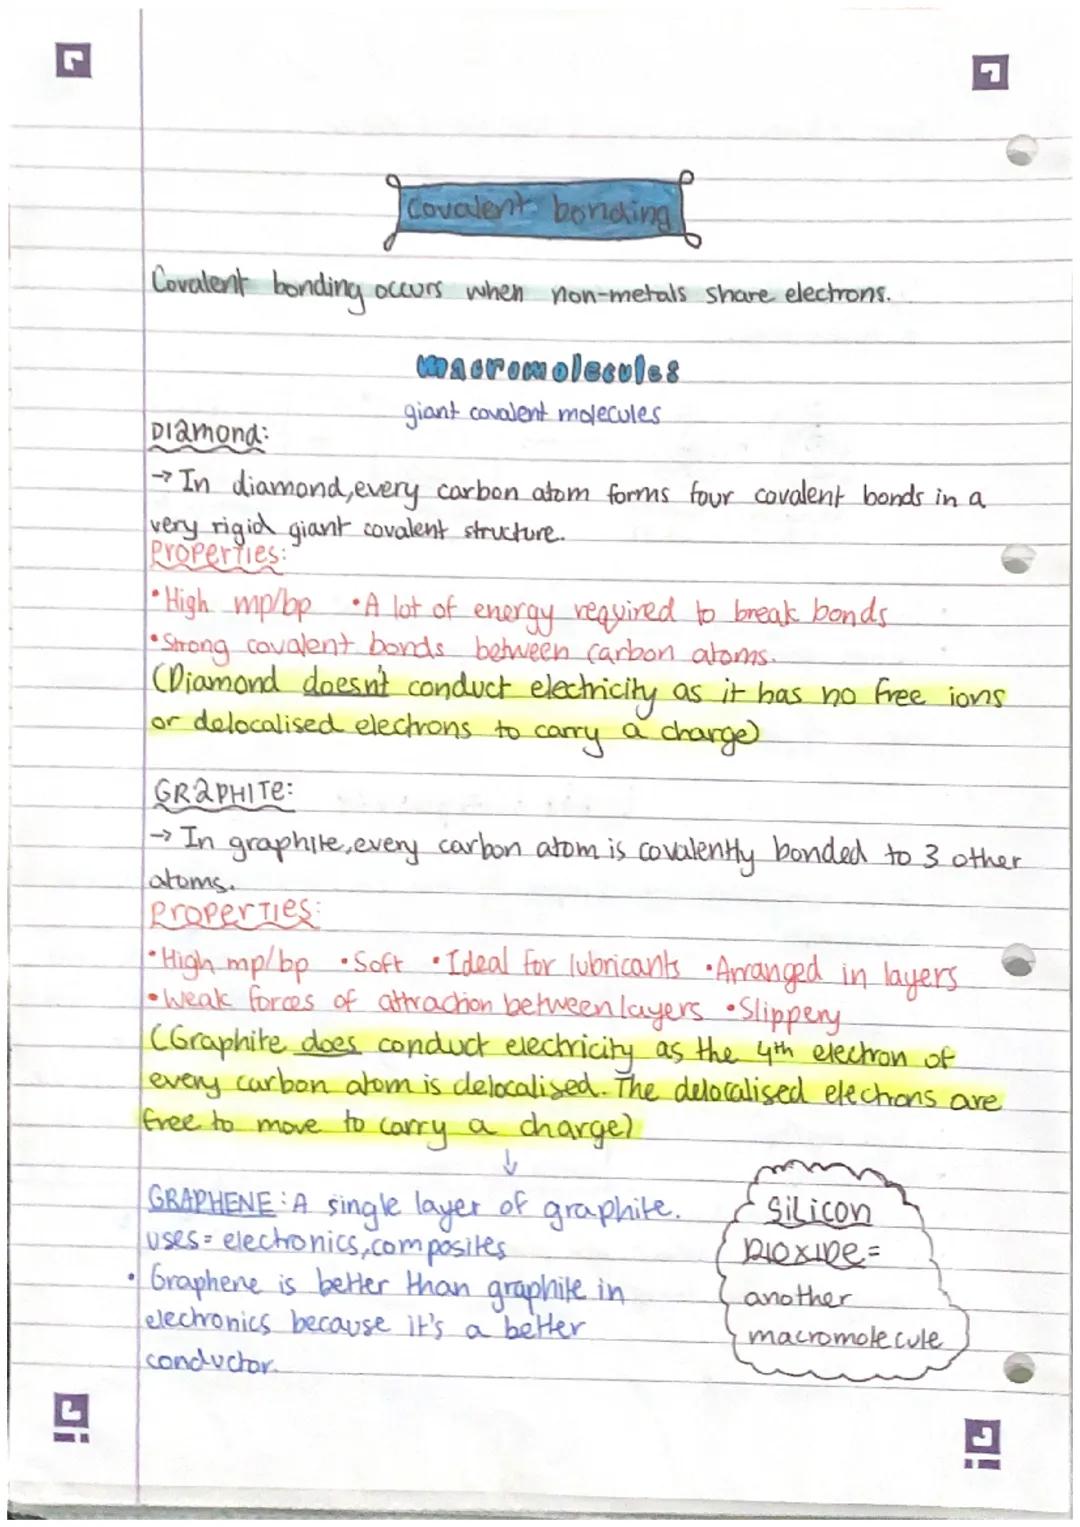 Covalent bonding
Covalent bonding occurs when non-metals share electrons.
macromolecules
giant covalent molecules
Diamond:
→ In diamond, every carbon atom forms four covalent bonds in a
very rigid giant covalent structure.
Properties:
•High mp/bp •A lot of energy required to break bonds
•Strong covalent bonds between carbon atoms.
(Diamond doesn't conduct electricity as it has no free ions
or delocalised electrons to carry a charge)
GRAPHITE:
→ In graphite, every carbon atom is covalently bonded to 3 other
atoms.
Properties:
•High mp/bp •Soft •Ideal for lubricants •Arranged in layers
•Weak forces of attraction between layers •Slippery
(Graphite does conduct electricity as the 4th electron of
every carbon atom is delocalised. The delocalised electrons are
free to move to carry a charge)
↓
GRAPHENE: A single layer of graphite.
uses = electronics, composites
• Graphene is better than graphite in
electronics because it's a better
conductor.
Silicon
Dioxide =
another
macromolecule